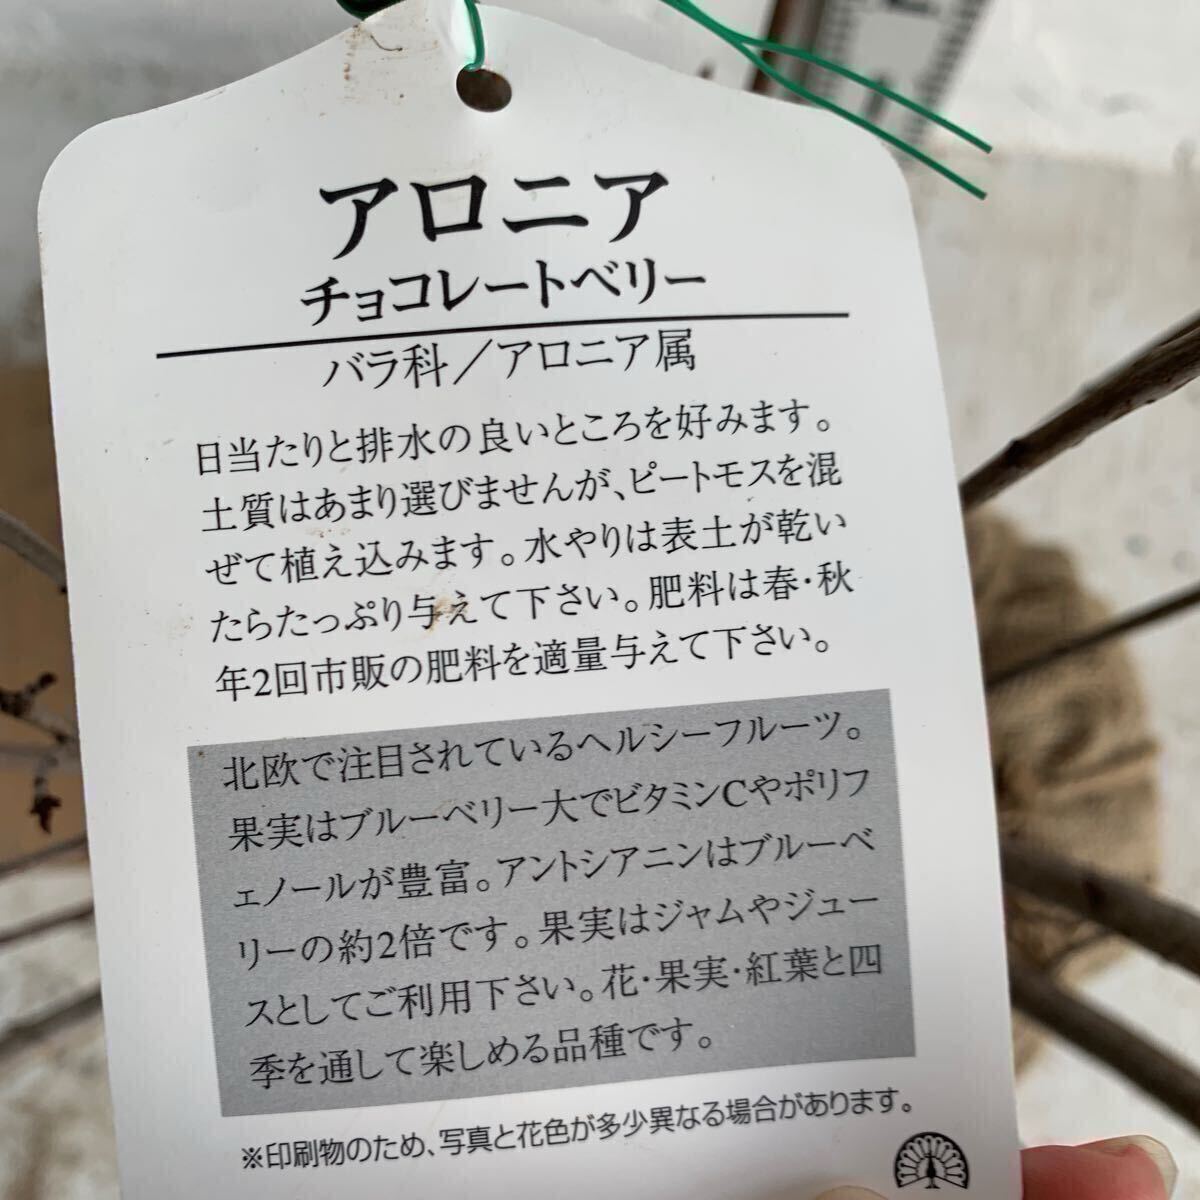 アロニア
チョコレートベリー
バラ科／アロニア属
日当たりと排水の良いところを好みます。
土質はあまり選びませんが、ピートモスを混
ぜて植え込みます。水やりは表土が乾い
たらたっぷり与えて下さい。肥料は春・秋
年2回市販の肥料を適量与えて下さい。
北欧で注目されているヘルシーフルーツ。
果実はブルーベリー大でビタミンCやポリフ
ェノールが豊富。アントシアニンはブルーベ
リーの約2倍です。果実はジャムやジュー
スとしてご利用下さい。花・果実・紅葉と四
季を通して楽しめる品種です。
※印刷物のため、写真と花色が多少異なる場合があります。